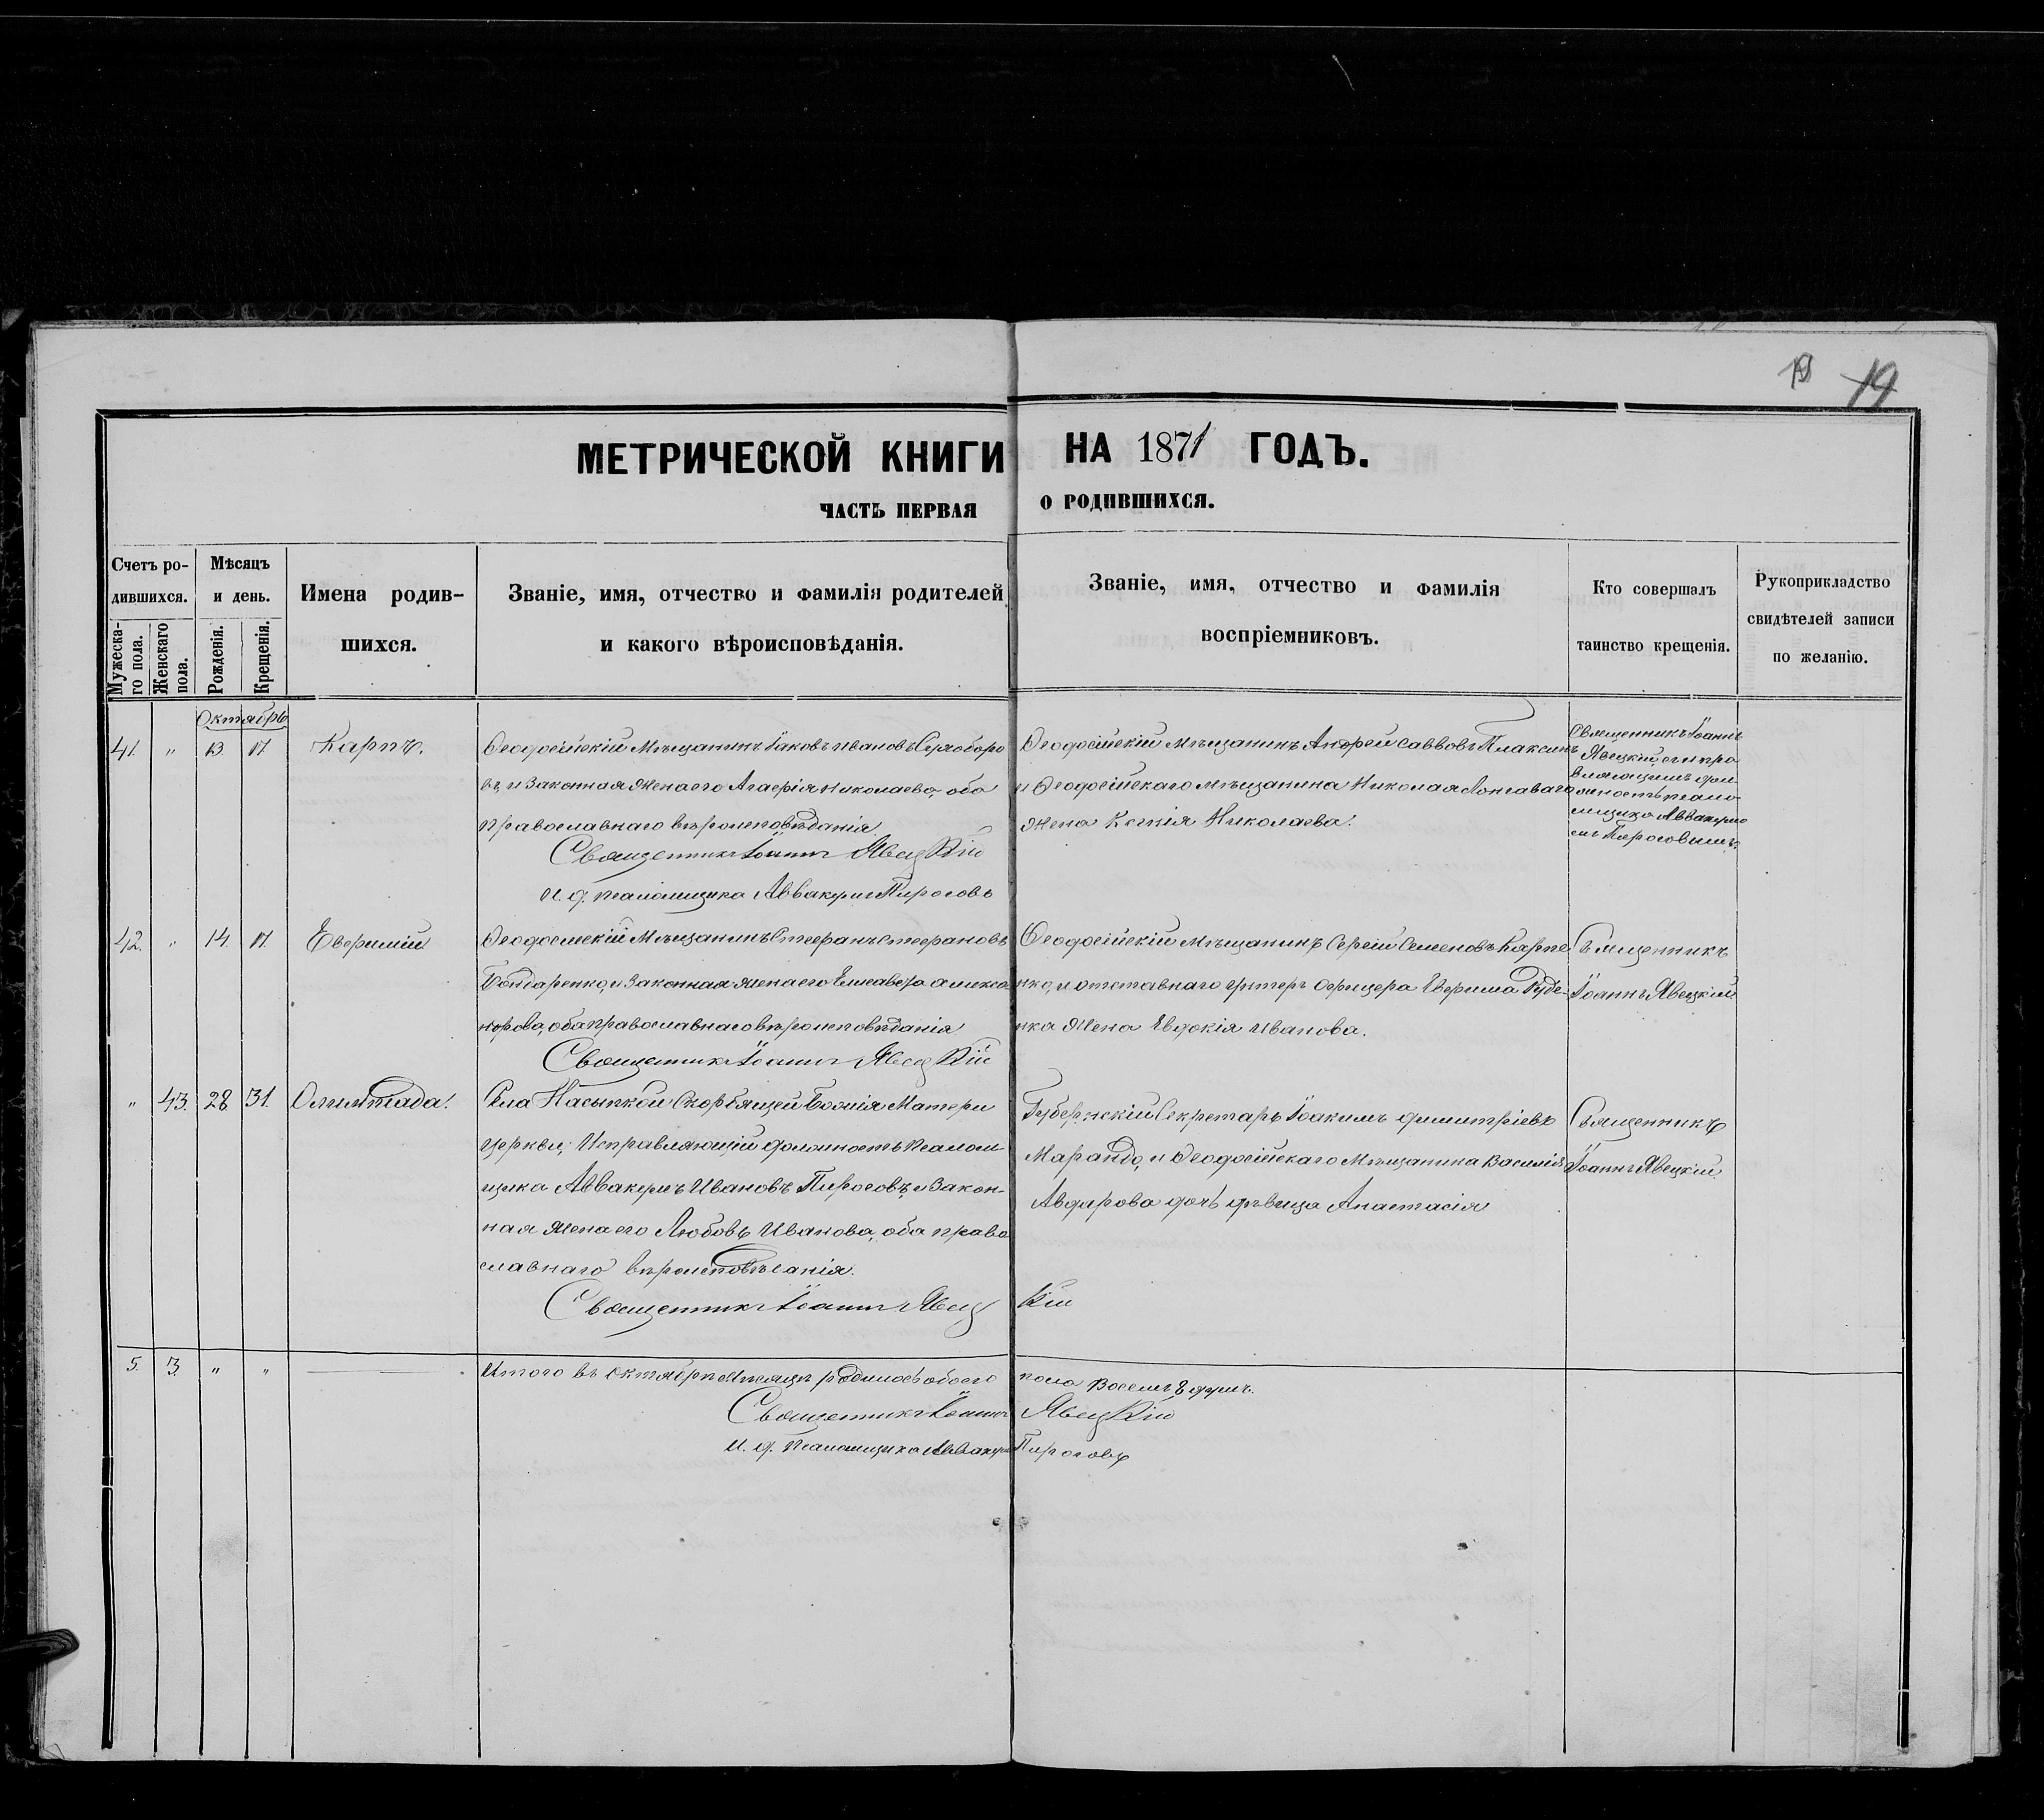 19 19
МЕТРИЧЕСКОЙ КНИГИ НА 1871 ГОДЪ.
ЧАСТЬ ПЕРВАЯ О РОДИВШИХСЯ.
Счетъ ро-
дившихся.
Мужеска-
го пола.
Женскаго
пола.
Мѣсяцъ
и день.
Рожденія.
Крещенія.
Имена родив-
шихся.
Званіе, имя, отчество и фамилія родителей
и какого вѣроисповѣданія.
Званіе, имя, отчество и фамилія
воспріемниковъ.
Кто совершалъ
таинство крещенія.
Рукоприкладство
свидѣтелей записи
по желанію.
Октябрь
41. " 13 17 Карпъ.
Ѳеодосійскій Мѣщанинъ Іаковъ Ивановъ
въ, и Законная Жена его Николаева, оба
православнаго вѣроисповѣданія.
Священникъ Іоаннъ Явецкій
И. д. псаломщика Аввакумъ Пироговъ
Ѳеодосійскій Мѣщанинъ Андрей Саввовъ Плаксинъ
и Ѳеодосійскаго Мѣщанина Николая
Жена Ксенія Николаева.
Священникъ Іоаннъ
Явецкій, съ испра
вляющимъ дол
жность псало-
мщика Аввакумо
мъ Пироговымъ.
42. " 14. 17. Евфимій
Ѳеодосійскій Мѣщанинъ Стефанъ Стефановъ
Бондаренко, и Законная Жена его Елисавета Алекса
ндрова, оба православнаго вѣроисповѣданія
Священникъ Іоаннъ Явецкій
Ѳеодосійскій Мѣщанинъ Сергій Семеновъ Карпе
нко, и отставнаго Унтеръ Офицера Евфима Руде-
нка Жена Евдокія Иванова.
Священникъ
Іоаннъ Явецкій
" 43. 28 31. Олимпіада.
Села Насыпкой Скорбящей Божія Матери
Церкви, Исправляющій должность Псалом-
щика Аввакумъ Ивановъ Пироговъ, и Закон-
ная Жена его Любовь Иванова, оба право
славнаго вѣроисповѣданія.
Священникъ Іоаннъ Явецкій
Губернскій Секретарь Іоакимъ Димитріевъ
Марандо, и Ѳеодосійскаго Мѣщанина Василія
дочь дѣвица Анастасія
Священникъ
Іоаннъ Явецкій.
5. 3. " " Итого въ Октябрѣ Мѣсяцѣ родилось обоего пола Восемь 8 душъ.
Священникъ Іоаннъ Явецкій
И. д. Псаломщика Аввакумъ Пироговъ